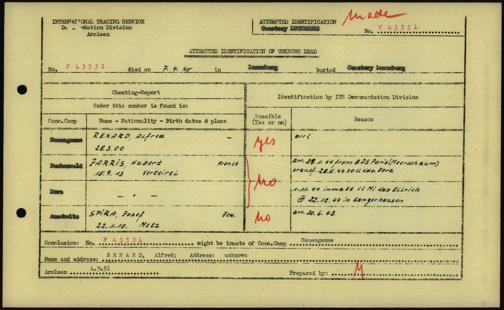 INTERNATIONAL TRACING SERVICE
Documentation Division
Arolsen
ATTEMPTED IDENTIFICATION
Cemetery LUNEBURG
made
No. F 43531
ATTEMPTED IDENTIFICATION OF UNKNOWN DEAD
No. F 43531 died on 7.4.45 in Luneburg buried Cemetery Luneburg
Checking-Report
Under this number is found in:
Identification by ITS Documentation Division
Conc.Camp
Name - Nationality - Birth dates & place
Possible (Yes or no)
Reason
Neuengamme
RENARD, Alfred —
28.3.00
yes
arr.
Buchenwald
JARRIS, Hubert French
15.9.13
arr. 29.1.44 from BDS Paris
transf. 28.2.44 to CC Dora
Dora
— " —
no
1.11.44 inmate CC Mi
22.12.44 in Sangerhausen
Auschwitz
SPIRA, Josef Jew.
22.1.10. Metz
no
arr. 20.6.42
Conclusion: No. F 43531 might be inmate of Conc.Camp Neuengamme
Name and address: RENARD, Alfred; Address: unknown
Arolsen 4.9.51
Prepared by: